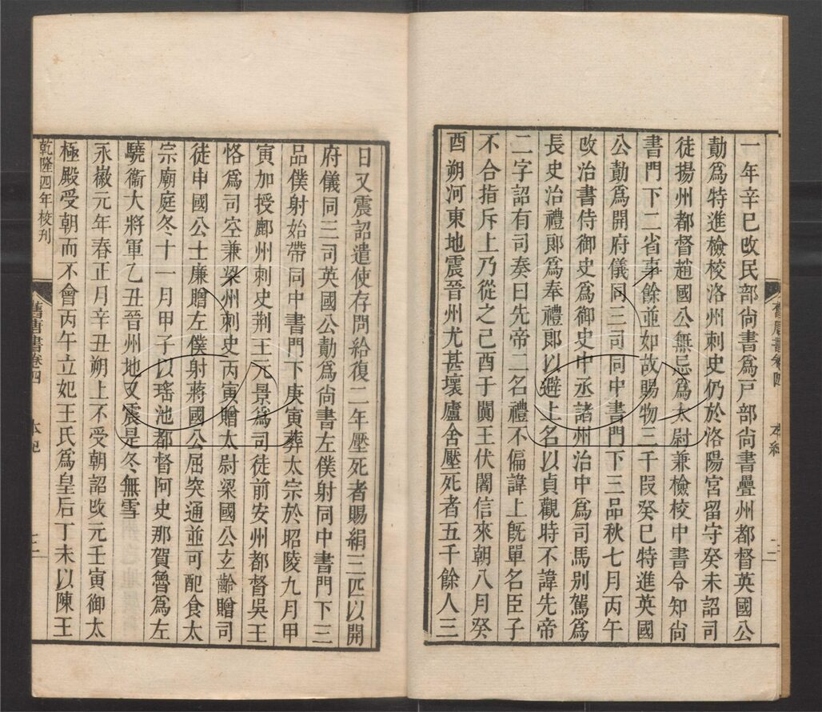 一年辛巳改民部尚書爲戸部尚書疊州都督英國公
勣爲特進檢校洛州刺史仍於洛陽宮留守癸未詔司
徒揚州都督趙國公無忌爲太尉兼檢校中書令知尚
書門下二省事餘並如故賜物三千叚癸巳特進英國
公勣爲開府儀同三司同中書門下三品秋七月丙午
改治書侍御史爲御史中丞諸州治中爲司馬别駕爲
長史治禮郎爲奉禮郎以避上名以貞觀時不諱先帝
二字詔有司奏曰先帝二名禮不偏諱上旣單名臣子
不合指斥上乃從之己酉于闐王伏闍信來朝八月癸
酉朔河東地震晉州尤甚壞廬舍壓死者五千餘人三
舊唐書卷四 本紀 二
日又震詔遣使存問給復二年壓死者賜絹三匹以開
府儀同三司英國公勣爲尚書左僕射同中書門下三
品僕射始帶同中書門下庚寅葬太宗於昭陵九月甲
寅加授鄜州刺史荆王元景爲司徒前安州都督吳王
恪爲司空兼梁州刺史丙寅贈太尉梁國公玄齡贈司
徒申國公士廉贈左僕射蔣國公屈突通並可配食太
宗廟庭冬十一月甲子以瑤池都督阿史那賀魯爲左
驍衞大將軍乙丑晉州地又震是冬無雪
永徽元年春正月辛丑朔上不受朝詔改元壬寅御太
極殿受朝而不會丙午立妃王氏爲皇后丁未以陳王
乾隆四年校刊 舊唐書卷四 本紀